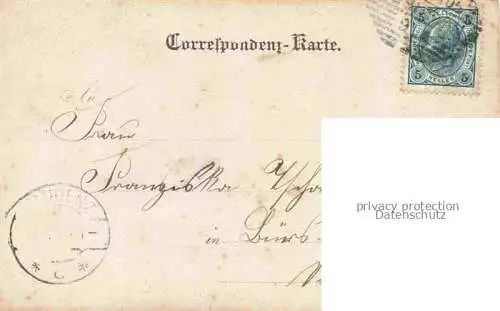 Correspondenz-Karte.
5 5
HELLER
5 5
An
Frau
Franziska Tscha
in Bürs
privacy protection
Datenschutz